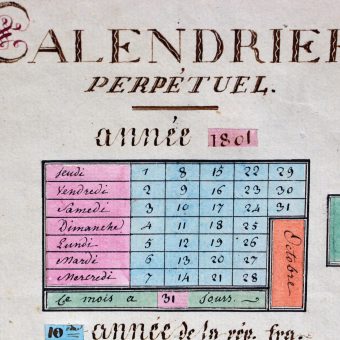 CALENDRIER
PERPÉTUEL.
année 1801
Jeudi 1 8 15 22 29
Vendredi 2 9 16 23 30
Samedi 3 10 17 24 31
Dimanche 4 11 18 25
Lundi 5 12 19 26
Mardi 6 13 20 27
Mercredi 7 14 21 28
Octobre
Ce mois a 31 Jours.
10ème année de la rép. fra.